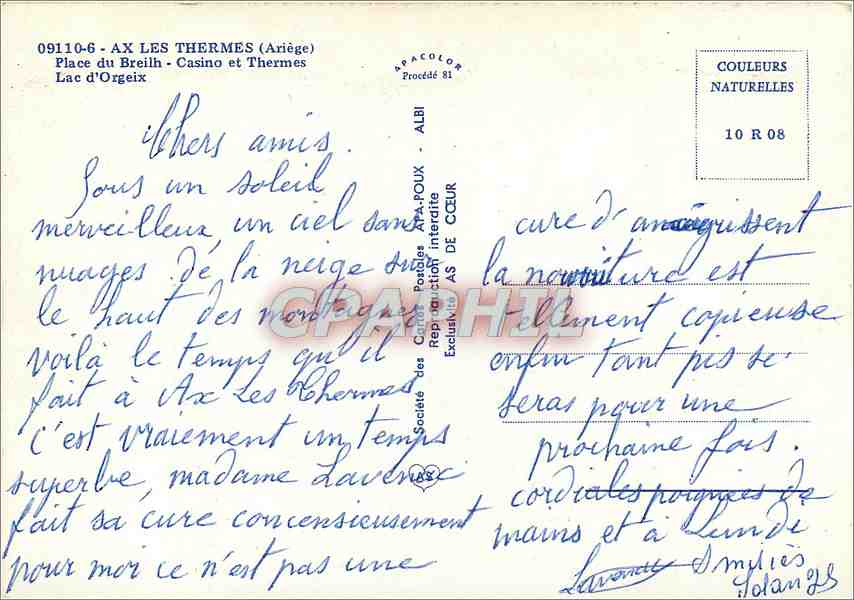 09110-6 - AX LES THERMES (Ariège)
Place du Breilh - Casino et Thermes
Lac d'Orgeix
APACOLOR
Procédé 81
COULEURS
NATURELLES
10 R 08
Société des Cartes Postales APA-POUX - ALBI
Reproduction interdite
Exclusivité AS DE CŒUR
CPAPHIL
Chers amis.
Sous un soleil
merveilleux, un ciel sans
nuages. de la neige sur
le haut des montagnes
voilà le temps qu'il
fait à Ax Les Thermes
C'est vraiment un temps
superbe, madame
fait sa cure concensieusement
pour moi ce n'est pas une
cure d'amaigrissent
la nourriture est
tellement copieuse
enfin tant pis se
seras pour une
prochaine fois.
cordiales poignées de
mains et à Lundi
Solange